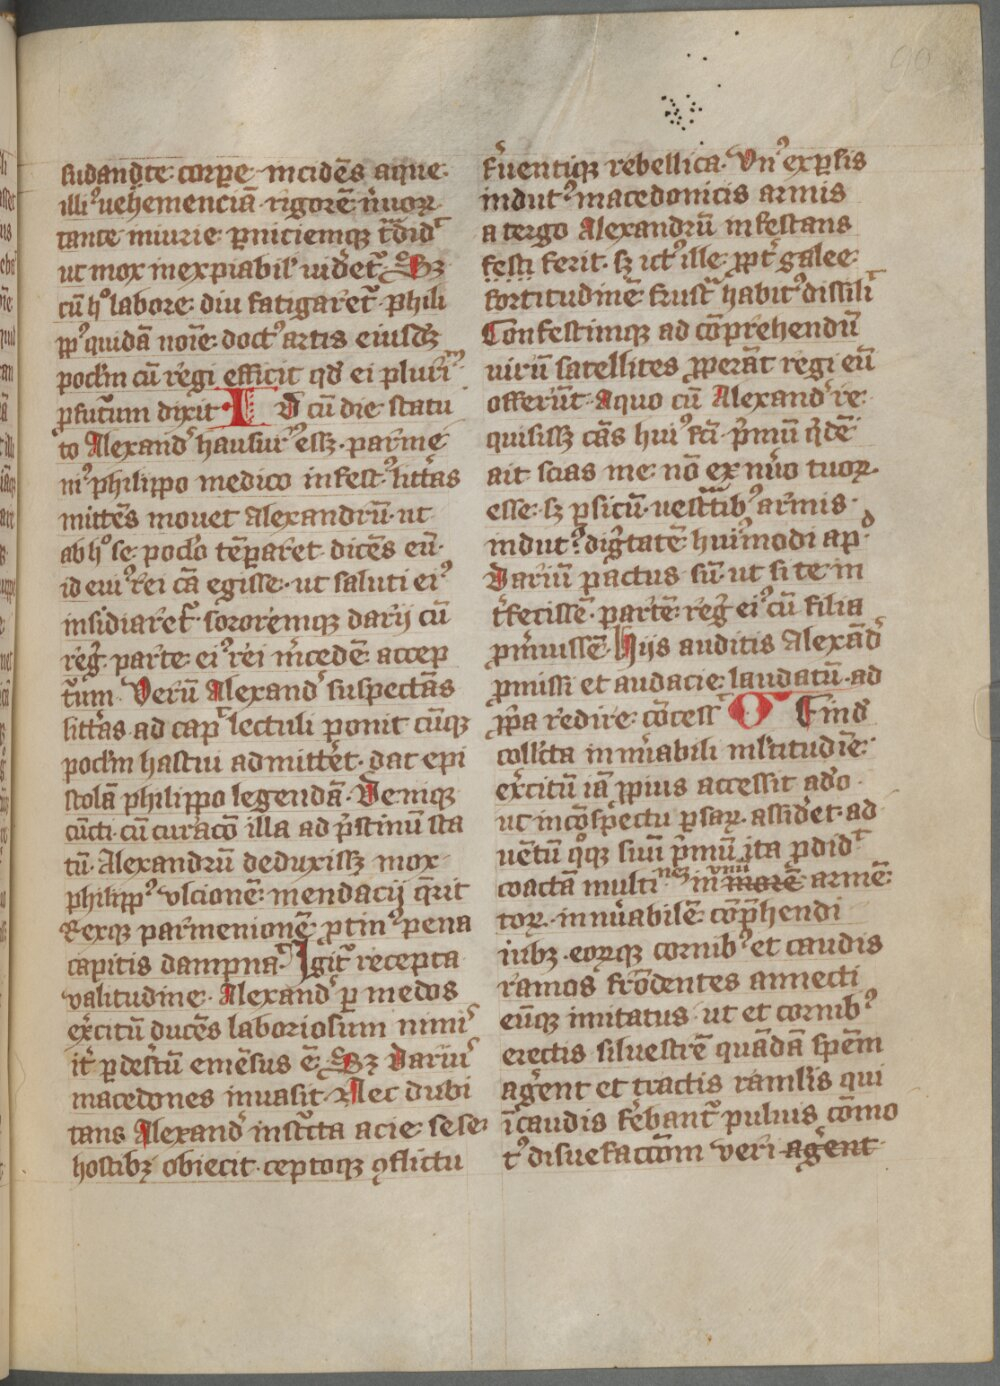 90
sudandte corpe incidēs aque
illi⁹ vehemenciā rigorē nr̄uor
tante iniurie p̱niciemq̄ t̄did͛
ut mox inexpiabil' vid'et᷑. Sꝫ
cū hº labore diu fatigaret᷑ phili
pp⁹ quidā noīe doct⁹ artis eiusdꝫ
poc̄lm cū regi efficit qd̄ ei plurīᵐ
ꝓfut᷑um dixit. I D cū die statu
to Alexand͛ hausur⁹ essꝫ. parme
ni⁹ philippo medico infest⁹ litt᷑as
mittēs mouet Alexandrū. ut
ab hº se poc̄lo tēparet dicēs eū.
id eui⁹ rei cā egisse. ut saluti ei⁹
insidiaret᷑. sororemq̄ darij cū
reg̅. parte ei⁹ rei m͛cedē accep
t᷑um. Verū Alexand͛ suspectās
litt᷑as ad cap᷑ lectuli ponit cūq̄
poc̄lm hastui admitt͛et. dat epi
stolā philippo legendā. Deniq̄
cūcti. cū curacō illa ad p͛stinū sta
tū. Alexandrū deduxissꝫ mox
philipp⁹ vlcionē mendacij q̄rit
Rexq̄ parmenionē ꝓtin⁹ pena
capitis dampna᷑. Igit᷑ recepta
valitudine. Alexand͛ p̱ medos
ex͛citū ducēs laboriosum nimi͛
it͛ p̱ des͛tū emēsus ē. Sꝫ Dariu͛
macedones inuasit. Nec dubi
tans Alexand͛ inst᷑cta acie sese
hostibꝫ obiecit. ceptoq̄ ꝯflictu
f͛uentiq̄ rebellica. Vn⁹ ex p̱sis
indut⁹ macedonicis armis
a tergo Alexandrū infestans
festi ferit. sꝫ ict⁹ ille ꝓpt͛ galee
fortitudinē frust᷑ habit⁹ dissili᷑
Confestimq̄ ad cōprehendū
virū satellites ꝓperāt regi eū
offerūt. A quo cū Alexand͛ re
quisissꝫ cās hui⁹ fc̄i. p͛mū q͛dē
ait scias me nō ex nūo tuoꝝ
esse. sꝫ p̱sicū. vestītib⁹ armis
indut⁹. dig͛tatē hui⁹modi apᵈ
Dariū pactus sū. ut si te in
t͛fecissē. partē reg̅ ei⁹ cū filia
ꝓm͛uissē. Hijs auditis Alexād͛
ꝓmissi et audacie laudatū. ad
ꝓp̱a redire cōcess᷑ O Eind͛
coll͛cta innūabili ml̄titudīe
ex͛citū iā ꝓpius accessit adº
ut in cōspectu p̱saꝝ. assid͛et. ad
uētū qºq̄ suū p͛mū ita p̱did᷑
coactā multiⁿᵉᶻ in morē vnū armē
toꝝ. innūabilē cōp͛hendi
iubꝫ. eoꝝq̄ cornib⁹ et caudis
ramos frōdentes annecti
eūq̄ imitatus ut et cornib⁹
erectis siluestrē quādā spēm
ag͛ent et tractis ramis qui
ī caudis f͛ebant᷑ puluis cōmo
t⁹ disuefaccōm veri agēnt